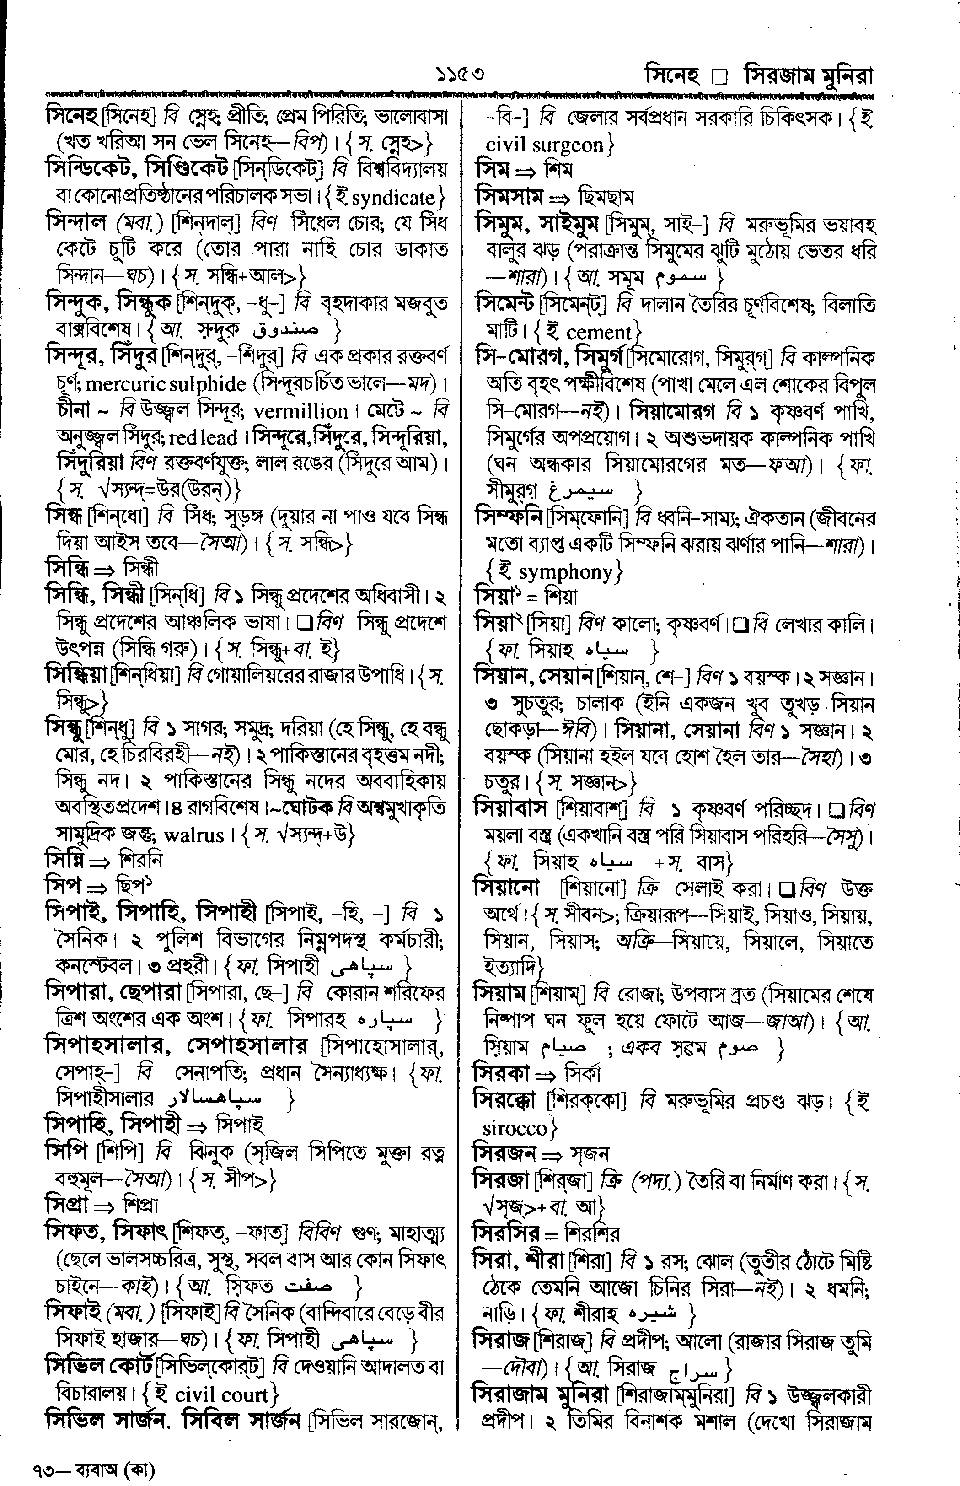 ১১৫৩
সিনেহ □ সিরাজাম মুনিরা
সিনেহ [সিনেহ] বি স্নেহ; প্রীতি; প্রেম পিরিতি; ভালোবাসা
(খত খরিআ সন ভেল সিনেহ—বিপ)। {স. স্নেহ>}
সিন্ডিকেট, সিণ্ডিকেট [সিন্‌ডিকেট] বি বিশ্ববিদ্যালয়
বা কোনো প্রতিষ্ঠানের পরিচালক সভা। {ই syndicate}
সিন্দাল (মবা.) [শিন্‌দাল্] বিণ সিঁধেল চোর; যে সিঁধ
কেটে চুটি করে (তোর পারা নাহি চোর ডাকাত
সিন্দান—ঘচ)। {স. সন্ধি+আল>}
সিন্দুক, সিন্ধুক [শিন্‌দুক্, -ধু-] বি বৃহদাকার মজবুত
বাক্সবিশেষ। {আ. স়ন্দুক় صندوق }
সিন্দূর, সিঁদুর [শিন্‌দুর্, -শিঁদুর্] বি এক প্রকার রক্তবর্ণ
চূর্ণ; mercuric sulphide (সিন্দূরচর্চিত ভালে—মদ)।
চীনা ~ বি উজ্জ্বল সিন্দূর; vermillion। মেটে ~ বি
অনুজ্জ্বল সিঁদুর; red lead। সিন্দূরে, সিঁদুরে, সিন্দূরিয়া,
সিঁদুরিয়া বিণ রক্তবর্ণযুক্ত; লাল রঙের (সিঁদুরে আম)।
{স. √স্যন্দ্=উর(উরন্)}
সিন্ধ [শিন্‌ধো] বি সিঁধ; সুড়ঙ্গ (দুয়ার না পাও যবে সিন্ধ
দিয়া আইস তবে—সৈআ)। {স. সন্ধি>}
সিন্ধি ⇒ সিন্ধী
সিন্ধি, সিন্ধী [সিন্‌ধি] বি ১ সিন্ধু প্রদেশের অধিবাসী। ২
সিন্ধু প্রদেশের আঞ্চলিক ভাষা। □বিণ সিন্ধু প্রদেশে
উৎপন্ন (সিন্ধি গরু)। {স. সিন্ধু+বা. ই}
সিন্ধিয়া [শিন্‌ধিয়া] বি গোয়ালিয়রের রাজার উপাধি। {স.
সিন্ধু>}
সিন্ধু [শিন্‌ধু] বি ১ সাগর; সমুদ্র; দরিয়া (হে সিন্ধু, হে বন্ধু
মোর, হে চিরবিরহী—নই)। ২ পাকিস্তানের বৃহত্তম নদী;
সিন্ধু নদ। ২ পাকিস্তানের সিন্ধু নদের অববাহিকায়
অবস্থিত প্রদেশ। ৪ রাগবিশেষ। ~ঘোটক বি অশ্বমুখাকৃতি
সামুদ্রিক জন্তু; walrus। {স. √স্যন্দ্+উ}
সিন্নি ⇒ শিরনি
সিপ ⇒ ছিপ১
সিপাই, সিপাহি, সিপাহী [সিপাই, -হি, -] বি ১
সৈনিক। ২ পুলিশ বিভাগের নিম্নপদস্থ কর্মচারী;
কনস্টেবল। ৩ প্রহরী। {ফা. সিপাহী سپاهی }
সিপারা, ছেপারা [সিপারা, ছে-] বি কোরান শরিফের
ত্রিশ অংশের এক অংশ। {ফা. সিপারহ سپاره }
সিপাহসালার, সেপাহসালার [সিপাহোসালার্,
সেপাহ্-] বি সেনাপতি; প্রধান সৈন্যাধ্যক্ষ। {ফা.
সিপাহীসালার سپاهسالار }
সিপাহি, সিপাহী ⇒ সিপাই
সিপি [শিপি] বি ঝিনুক (সৃজিল সিপিতে মুক্তা রত্ন
বহুমূল—সৈআ)। {স. সীপ>}
সিপ্রা ⇒ শিপ্রা
সিফত, সিফাৎ [শিফত্, -ফাত্] বিবিণ গুণ; মাহাত্ম্য
(ছেলে ভালসচ্চরিত্র, সুস্থ, সবল বাস আর কোন সিফাৎ
চাইনে—কাই)। {আ. স়িফত صفت }
সিফাই (মবা.) [সিফাই] বি সৈনিক (বান্দিবারে বেড়ে বীর
সিফাই হাজার—ঘচ)। {ফা. সিপাহী سپاهی }
সিভিল কোর্ট [সিভিল্‌কোর্‌ট্] বি দেওয়ানি আদালত বা
বিচারালয়। {ই civil court}
সিভিল সার্জন. সিবিল সার্জন [সিভিল সারজোন্,
৭৩— ব্যবাঅ (কা)
-বি-] বি জেলার সর্বপ্রধান সরকারি চিকিৎসক। {ই
civil surgeon}
সিম ⇒ শিম
সিমসাম ⇒ ছিমছাম
সিমুম, সাইমুম [সিমুম্, সাই-] বি মরুভূমির ভয়াবহ
বালুর ঝড় (পরাক্রান্ত সিমুমের ঝুটি মুঠোয় ভেতর ধরি
—শারা)। {আ. সমূম سموم }
সিমেন্ট [সিমেন্‌ট] বি দালান তৈরির চূর্ণবিশেষ; বিলাতি
মাটি। {ই cement}
সি-মোরগ, সিমুর্গ [সিমোরোগ, সিমুর্‌গ] বি কাল্পনিক
অতি বৃহৎ পক্ষীবিশেষ (পাখা মেলে এল শোকের বিপুল
সি-মোরগ—নই)। সিয়ামোরগ বি ১ কৃষ্ণবর্ণ পাখি,
সিমুর্গের অপপ্রয়োগ। ২ অশুভদায়ক কাল্পনিক পাখি
(ঘন অন্ধকার সিয়ামোরগের মত—ফআ)। {ফা.
সীমুরগ سیمرغ }
সিম্ফনি [সিম্‌ফোনি] বি ধ্বনি-সাম্য; ঐকতান (জীবনের
মতো ব্যাপ্ত একটি সিম্ফনি ঝরায় ঝর্ণার পানি—শারা)।
{ই symphony}
সিয়া১ = শিয়া
সিয়া২ [সিয়া] বিণ কালো; কৃষ্ণবর্ণ। □বি লেখার কালি।
{ফা. সিয়াহ سیاه }
সিয়ান, সেয়ান [শিয়ান্, শে-] বিণ ১ বয়স্ক। ২ সজ্ঞান।
৩ সুচতুর; চালাক (ইনি একজন খুব তুখড় সিয়ান
ছোকড়া—ঈবি)। সিয়ানা, সেয়ানা বিণ ১ সজ্ঞান। ২
বয়স্ক (সিয়ানা হইল যবে হোশ হৈল তার—সৈহা)। ৩
চতুর। {স. সজ্ঞান>}
সিয়াবাস [শিয়াবাশ্] বি ১ কৃষ্ণবর্ণ পরিচ্ছদ। □বিণ
ময়লা বস্ত্র (একখানি বস্ত্র পরি সিয়াবাস পরিহরি—সৈসু)।
{ফা. সিয়াহ سیاه +স. বাস}
সিয়ানো [শিয়ানো] ক্রি সেলাই করা। □বিণ উক্ত
অর্থে। {স. সীবন>; ক্রিয়ারূপ—সিয়াই, সিয়াও, সিয়ায়,
সিয়ান, সিয়াস; অক্রি—সিয়ায়ে, সিয়ালে, সিয়াতে
ইত্যাদি}
সিয়াম [শিয়াম্] বি রোজা; উপবাস ব্রত (সিয়ামের শেষে
নিষ্পাপ ঘন ফুল হয়ে ফোটে আজ—জাআ)। {আ.
স়িয়াম صيام ; একব স়ওম صوم }
সিরকা ⇒ সির্কা
সিরক্কো [শিরক্‌কো] বি মরুভূমির প্রচণ্ড ঝড়। {ই
sirocco}
সিরজন ⇒ সৃজন
সিরজা [শির্‌জা] ক্রি (পদ্য.) তৈরি বা নির্মাণ করা। {স.
√সৃজ্>+বা. আ}
সিরসির = শিরশির
সিরা, শীরা [শিরা] বি ১ রস; ঝোল (তুতীর ঠোঁটে মিষ্টি
ঠেকে তেমনি আজো চিনির সিরা—নই)। ২ ধমনি;
নাড়ি। {ফা. শীরাহ شیره }
সিরাজ [শিরাজ্] বি প্রদীপ; আলো (রাজার সিরাজ তুমি
—দৌবা)। {আ. সিরাজ سراج }
সিরাজাম মুনিরা [শিরাজাম্‌মুনিরা] বি ১ উজ্জ্বলকারী
প্রদীপ। ২ তিমির বিনাশক মশাল (দেখো সিরাজাম